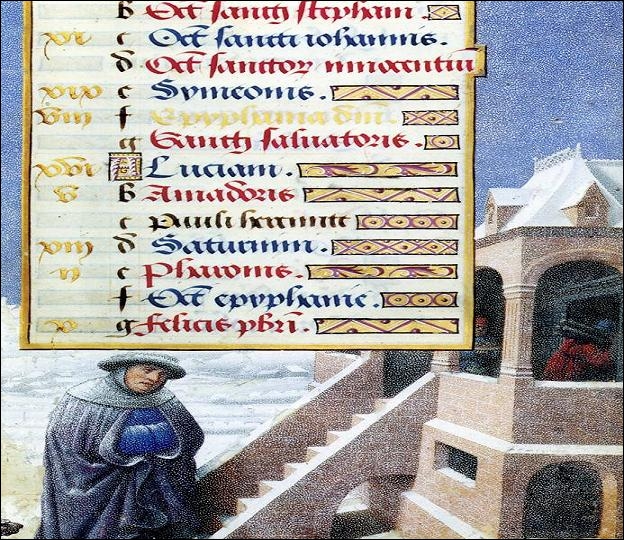 b Oct sancti stephani.
xi c Oct sancti iohannis.
d Oct sanctoꝝ innocentiū
xix e Symeonis.
viii f Epyphania dni
g Sancti saluatoris.
xvi A Luciani.
v b Amadoris
c Pauli heremite
xiii d Saturnini.
ii e Pharonis.
f Oct epyphanie.
x g Felicis pbri.